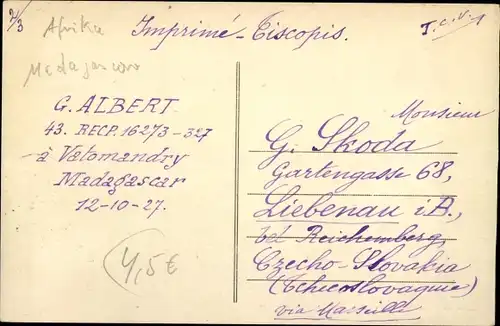 7/3
Afrika
Imprimé-Ciscopis.
T.C.V.
Medagascar
G. ALBERT
43. RECP. 16273-327
à Vatomandry
Madagascar
12-10-27.
4,5€
Monsieur
G. Skoda
Gartengasse 68,
Liebenau i.B.,
bei Reichemberg,
Czecho-Slovakia
(Tchécoslovaquie)
via Marseille